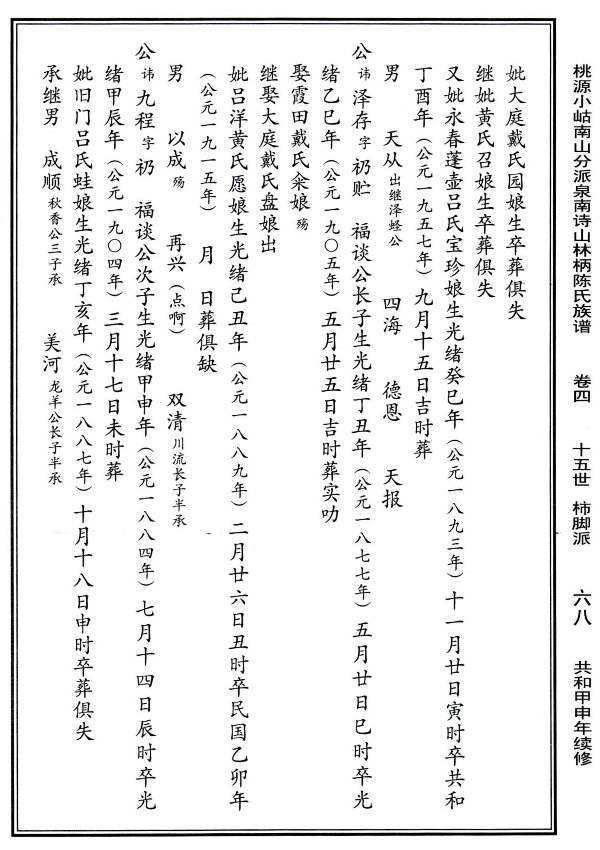 桃源小岵南山分派泉南诗山林柄陈氏族谱 卷四 十五世 柿脚派 六八 共和甲申年续修
妣大庭戴氏园娘生卒葬俱失
继妣黄氏召娘生卒葬俱失
又妣永春蓬壶吕氏宝珍娘生光绪癸巳年（公元一八九三年）十一月廿日寅时卒共和
丁酉年（公元一九五七年）九月十五日吉时葬
男 天从 出继泽蛏公 四海 德恩 天报
公 讳 泽存 字 礽贮 福谈公长子生光绪丁丑年（公元一八七七年）五月廿日巳时卒光
绪乙巳年（公元一九〇五年）五月廿五日吉时葬实叻
娶霞田戴氏籴娘 殇
继娶大庭戴氏盘娘出
妣吕洋黄氏愿娘生光绪己丑年（公元一八八九年）二月廿六日丑时卒民国乙卯年
（公元一九一五年） 月 日葬俱缺
男 以成 殇 再兴（点啊） 双清 川流长子半承
公 讳 九程 字 礽 福谈公次子生光绪甲申年（公元一八八四年）七月十四日辰时卒光
绪甲辰年（公元一九〇四年）三月十七日未时葬
妣旧门吕氏蛙娘生光绪丁亥年（公元一八八七年）十月十八日申时卒葬俱失
承继男 成顺 秋香公三子承 美河 龙羊公长子半承